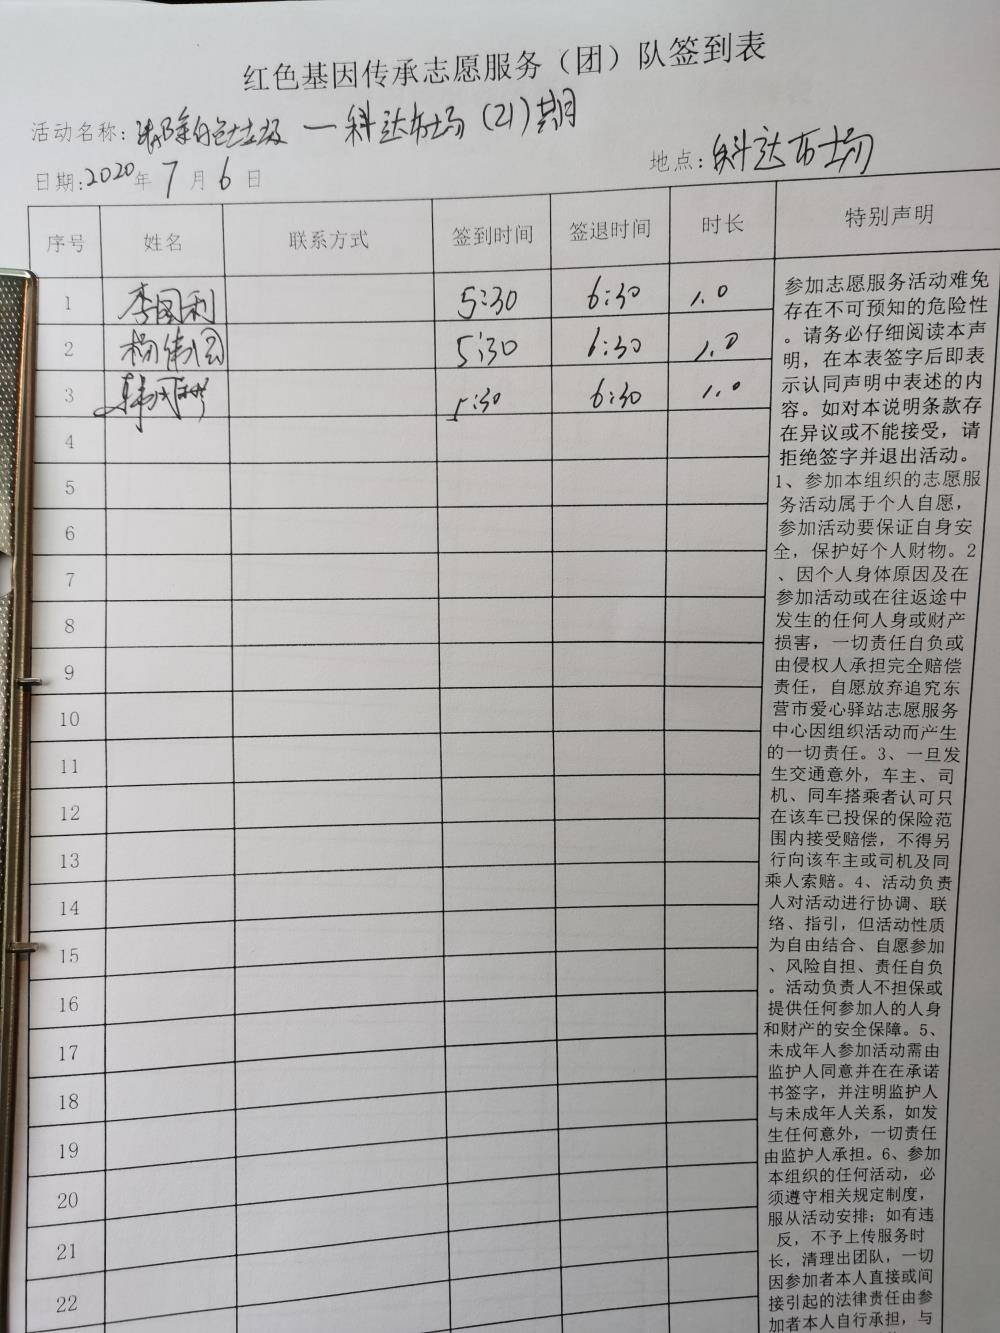 红色基因传承志愿服务（团）队签到表
活动名称：清除白色垃圾 — 科达市场（21）期
日期：2020年 7 月 6 日 地点：科达市场
序号 姓名 联系方式 签到时间 签退时间 时长 特别声明
1 李国利 5:30 6:30 1.0
2 杨伟国 5:30 6:30 1.0
3 5:30 6:30 1.0
4
5
6
7
8
9
10
11
12
13
14
15
16
17
18
19
20
21
22
参加志愿服务活动难免
存在不可预知的危险性
。请务必仔细阅读本声
明，在本表签字后即表
示认同声明中表述的内
容。如对本说明条款存
在异议或不能接受，请
拒绝签字并退出活动。
1、参加本组织的志愿服
务活动属于个人自愿，
参加活动要保证自身安
全，保护好个人财物。2
、因个人身体原因及在
参加活动或在往返途中
发生的任何人身或财产
损害，一切责任自负或
由侵权人承担完全赔偿
责任，自愿放弃追究东
营市爱心驿站志愿服务
中心因组织活动而产生
的一切责任。3、一旦发
生交通意外，车主、司
机、同车搭乘者认可只
在该车已投保的保险范
围内接受赔偿，不得另
行向该车主或司机及同
乘人索赔。4、活动负责
人对活动进行协调、联
络、指引，但活动性质
为自由结合、自愿参加
、风险自担、责任自负
。活动负责人不担保或
提供任何参加人的人身
和财产的安全保障。5、
未成年人参加活动需由
监护人同意并在在承诺
书签字，并注明监护人
与未成年人关系，如发
生任何意外，一切责任
由监护人承担。6、参加
本组织的任何活动，必
须遵守相关规定制度，
服从活动安排；如有违
反，不予上传服务时
长，清理出团队，一切
因参加者本人直接或间
接引起的法律责任由参
加者本人自行承担，与